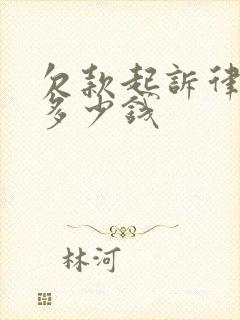 欠款起訴律
多少錢
林河